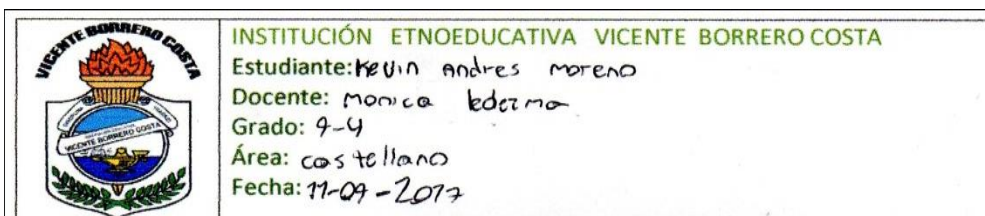 VICENTE BORRERO COSTA
VICENTE BORRERO COSTA
INSTITUCIÓN ETNOEDUCATIVA VICENTE BORRERO COSTA
Estudiante: Kevin Andres moreno
Docente: monica ledezma
Grado: 9-4
Área: castellano
Fecha: 11-09-2017